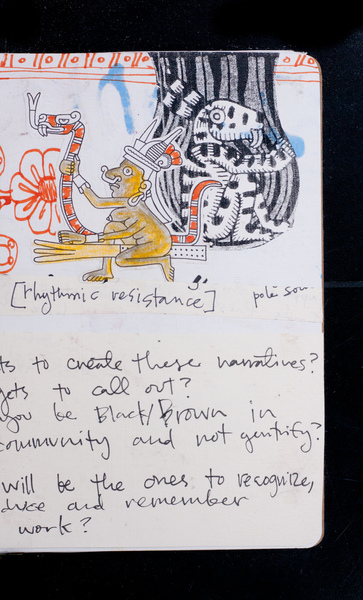 [rhythmic resistance] polé son
ts to create these narratives?
gets to call out?
you be Black/Brown in
community and not gentrify?
will be the ones to recognize,
duce and remember
work?